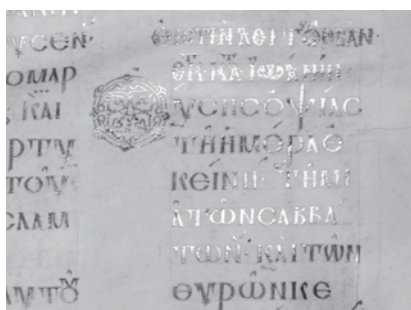 ΥϹΕΝ·
ΟΜΑΡ
ΚΑΙ
ΡΤΥ
ΤΟΥ
ϹΛΑΜ
ΑΥΤΟΥ
ΥϹΗϹ ΟΨΙΑϹ
ΤΗ ΗΜΕΡΑ Ε
ΚΕΙΝΗ· ΤΗ ΜΙ
Α ΤΩΝ ϹΑΒΒΑ
ΤΩΝ· ΚΑΙ ΤΩΝ
ΘΥΡΩΝ ΚΕ